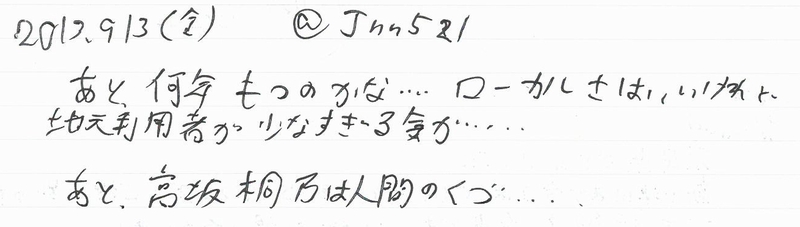 2013.9 13(金) @Jnn521
あと、何年もつのかな.... ローカルさはいいけれど、
地元利用者が少なすぎる気が......
あと、高坂桐乃は人間のくづ.....